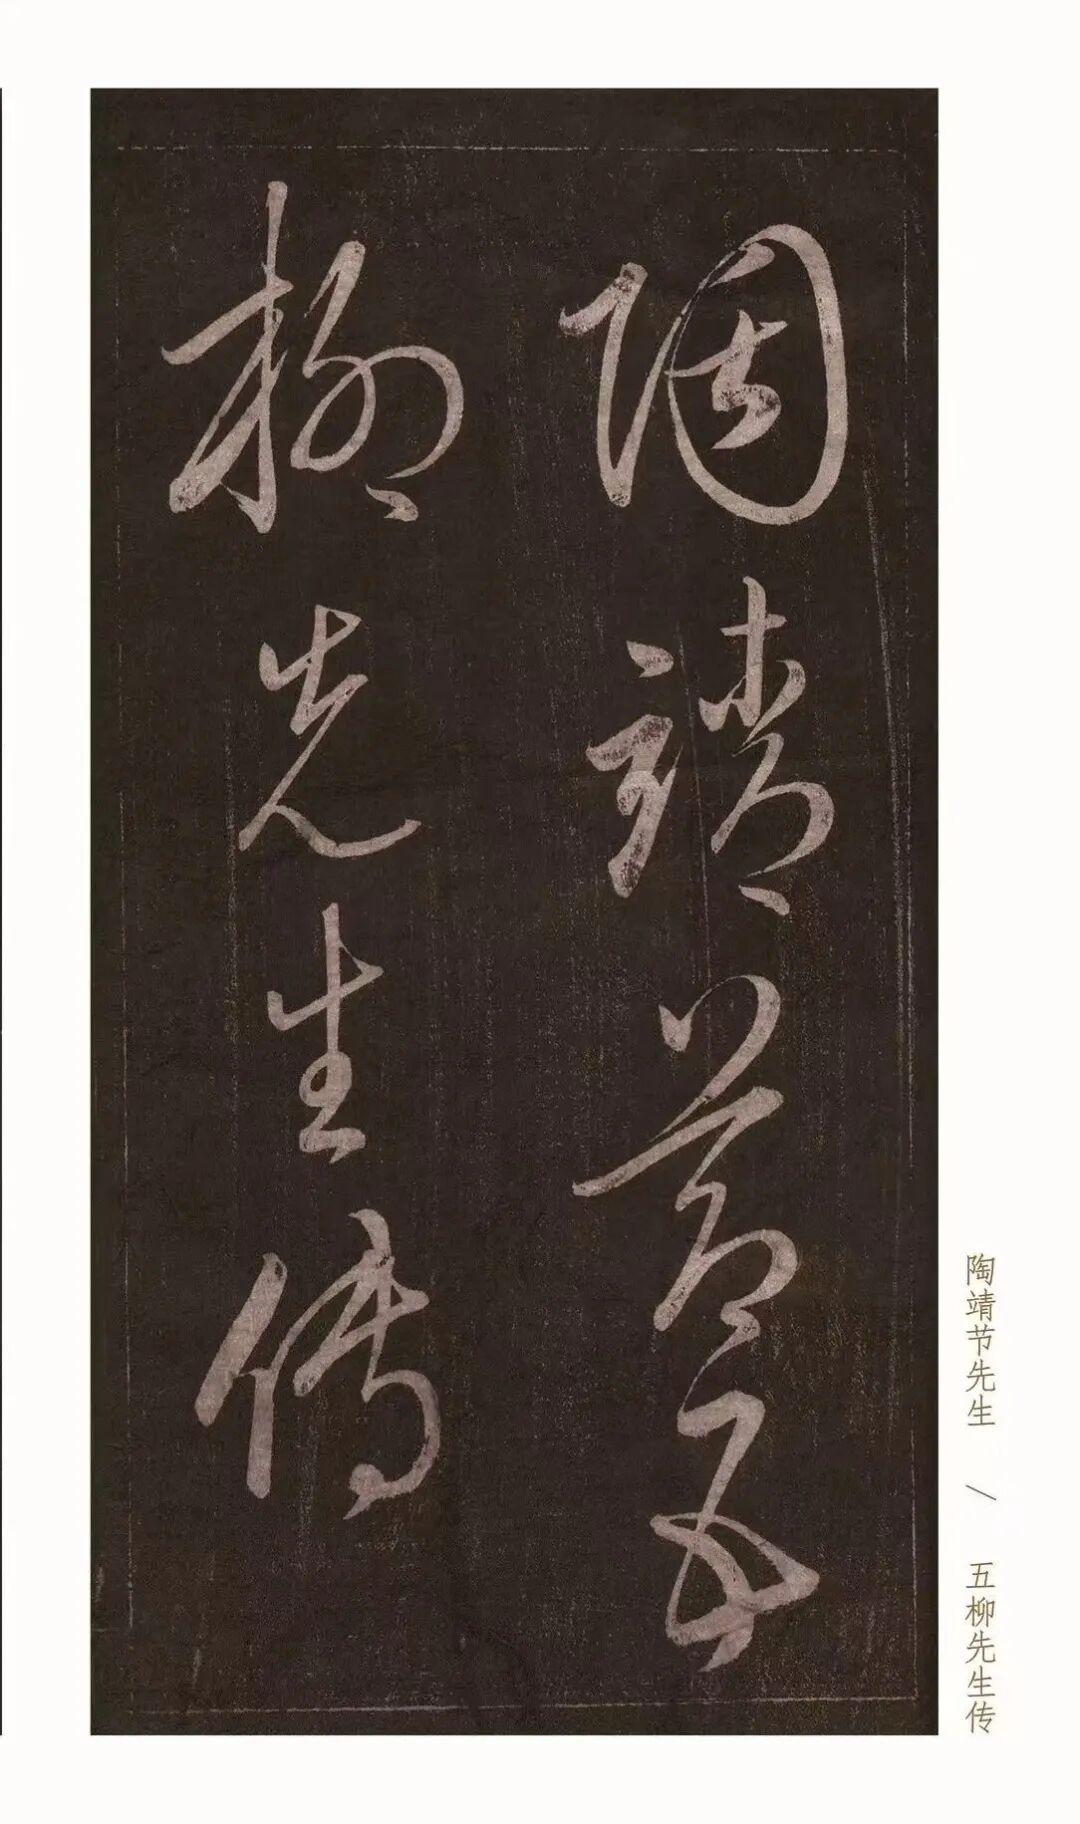 陶靖節五
柳先生傳
陶靖节先生 / 五柳先生传